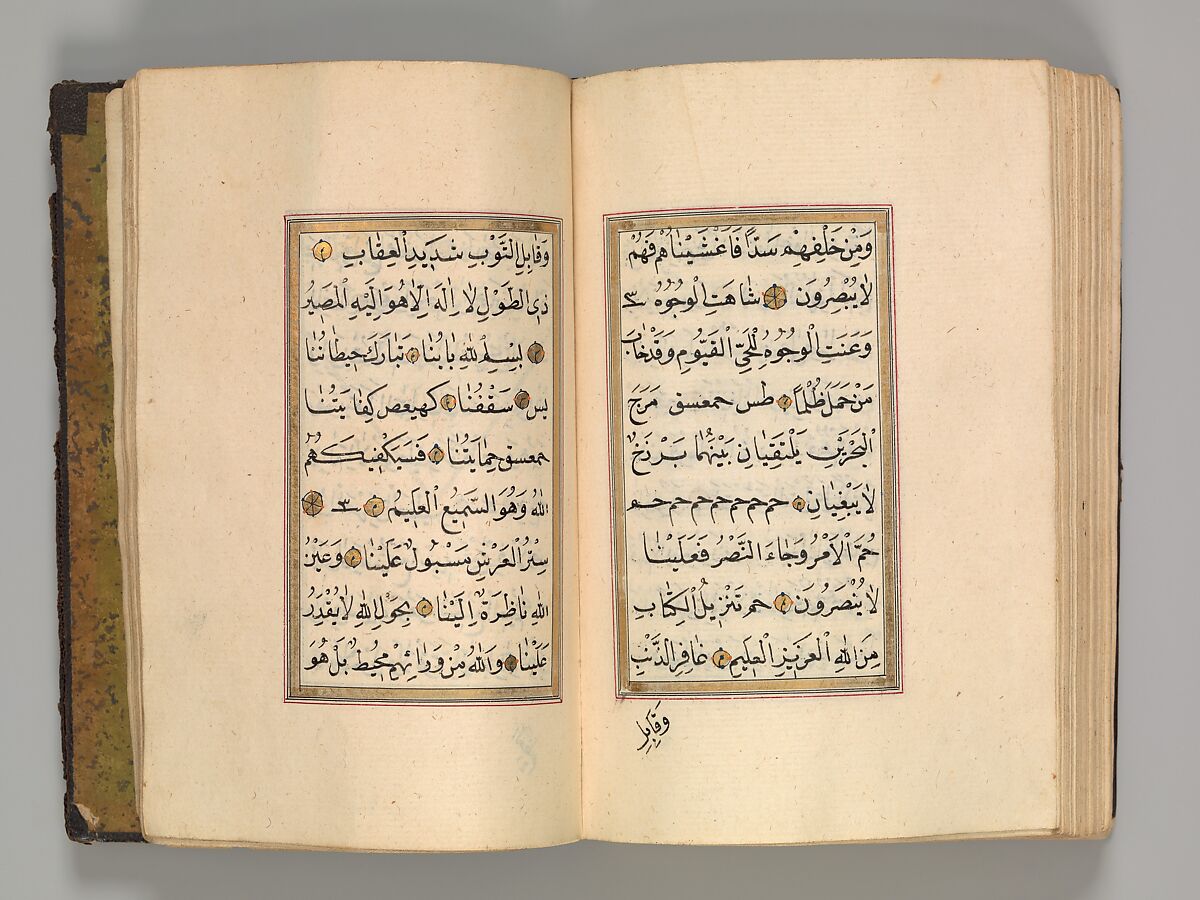 وَمِنْ خَلْفِهِمْ سَدًّا فَاَغْشَيْنَاهُمْ فَهُمْ
لَا يُبْصِرُونَ شَاهَتِ الْوُجُوهُ ٣
وَعَنَتِ الْوُجُوهُ لِلْحَيِّ الْقَيُّومِ وَقَدْ خَابَ
مَنْ حَمَلَ ظُلْمًا طس حمعسق مَرَجَ
الْبَحْرَيْنِ يَلْتَقِيَانِ بَيْنَهُمَا بَرْزَخٌ
لَا يَبْغِيَانِ حم حم حم حم حم حم حم
حُمَّ الْاَمْرُ وَجَاءَ النَّصْرُ فَعَلَيْنَا
لَا يُنْصَرُونَ حم تَنْزِيلُ الْكِتَابِ
مِنَ اللهِ الْعَزِيزِ الْعَلِيمِ غَافِرِ الذَّنْبِ
وَقَابِلِ
وَقَابِلِ التَّوْبِ شَدِيدِ الْعِقَابِ
ذِي الطَّوْلِ لَا اِلٰهَ اِلَّا هُوَ اِلَيْهِ الْمَصِيرُ
بِسْمِ اللهِ بَابُنَا تَبَارَكَ حِيطَانُنَا
يس سَقْفُنَا كهيعص كِفَايَتُنَا
حمعسق حِمَايَتُنَا فَسَيَكْفِيكَهُمُ
اللهُ وَهُوَ السَّمِيعُ الْعَلِيمُ ٣
سِتْرُ الْعَرْشِ مَسْبُولٌ عَلَيْنَا وَعَيْنُ
اللهِ نَاظِرَةٌ اِلَيْنَا بِحَوْلِ اللهِ لَا يُقْدَرُ
عَلَيْنَا وَاللهُ مِنْ وَرَائِهِمْ مُحِيطٌ بَلْ هُوَ